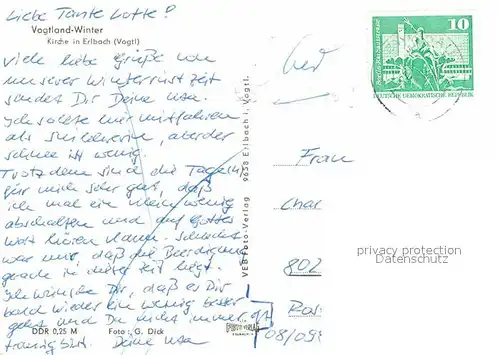 Liebe Tante Lotte!
Vogtland-Winter
Kirche in Erlbach (Vogtl)
viele liebe Grüße von
unserer Winterrüstzeit
sendet Dir Deine
Ich sollte nur mitfahren
als aber der
Schnee ist wenig.
Trotzdem sind die Tage
für mich sehr gut, daß
ich mal ein klein wenig
abschalten und auf Gottes
Wort hören kann. Schade
war nur, daß die Beerdigung
gerade in dieser Zeit liegt.
Ich wünsche Dir, daß es Dir
bald wieder ein wenig besser
geht und Du nicht immer
traurig bist. Deine
DDR 0,25 M Foto: G. Dick
VEB Foto-Verlag 9658 Erlbach i. Vogtl.
10
DEUTSCHE DEMOKRATISCHE REPUBLIK
Frau
Char
802
privacy protection
Datenschutz
08/09